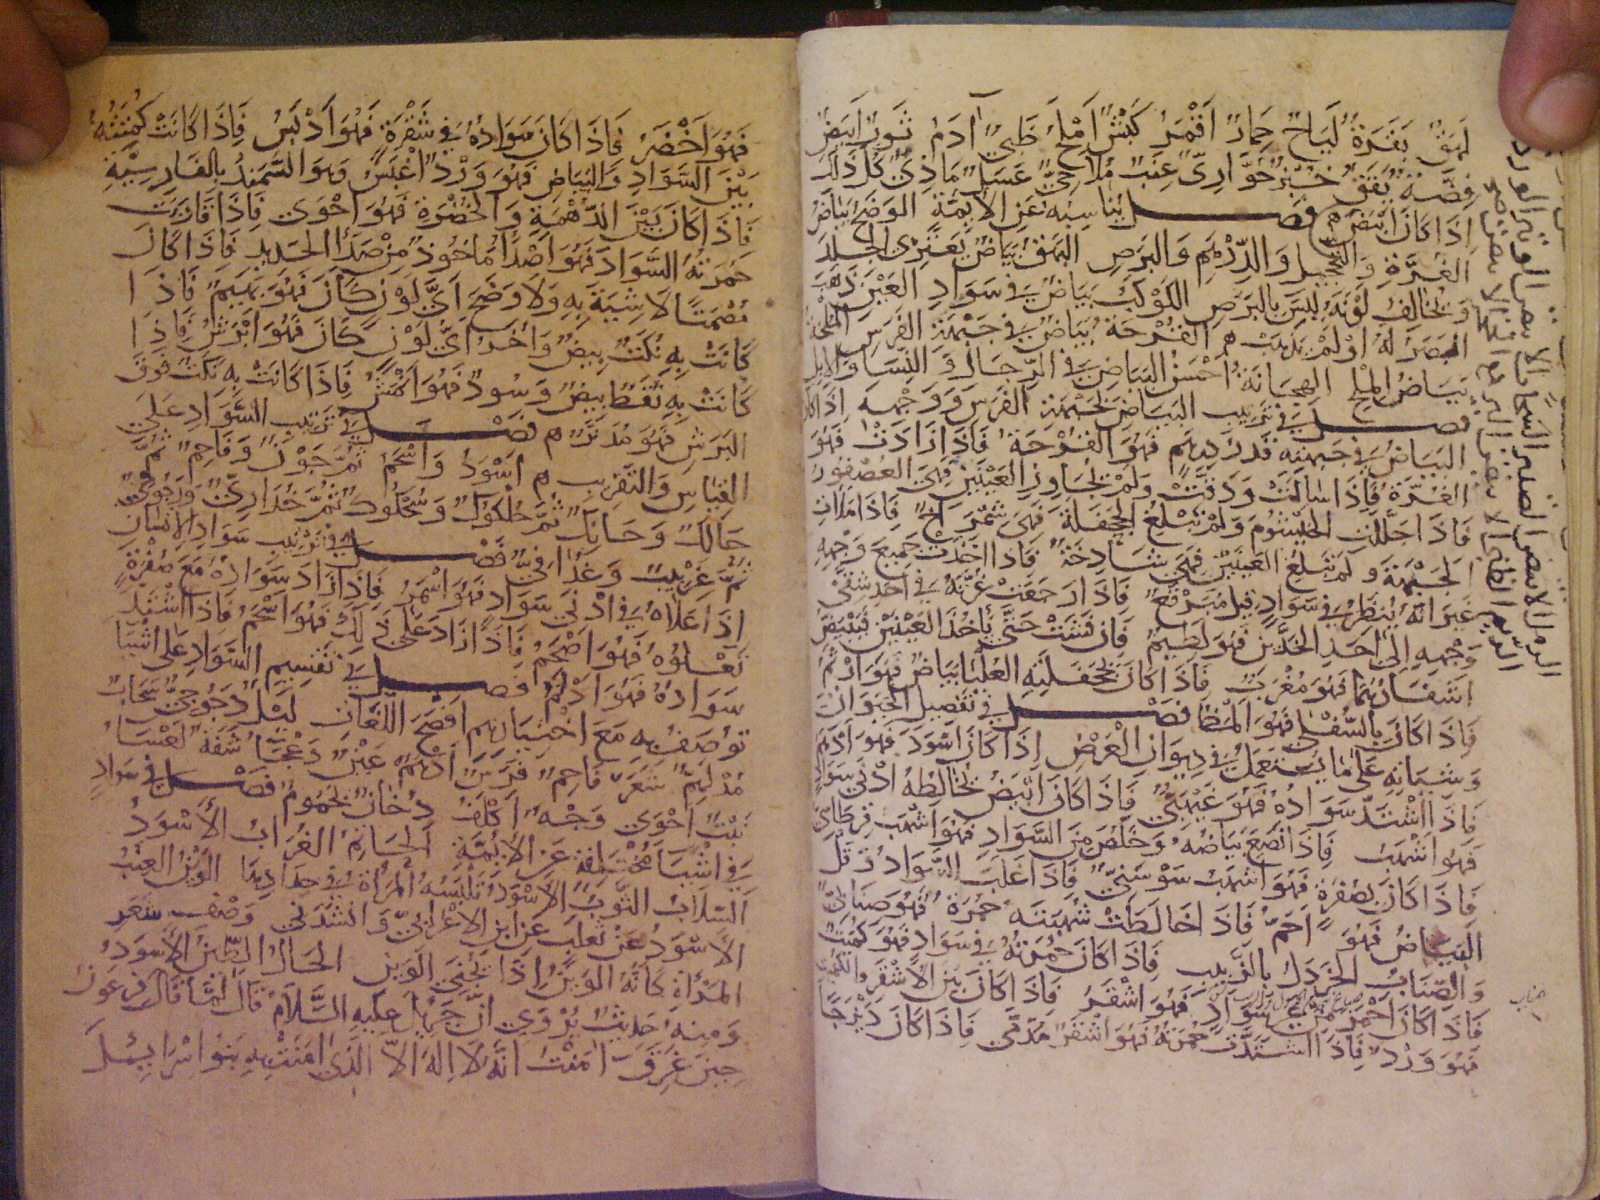 لَهَقٌ بَقَرَةٌ لَيَاحٌ حِمَارٌ اَقْمَرُ كَبْشٌ اَمْلَحُ ظَبْيٌ آدَمُ ثَوْبٌ اَبْيَضُ
فِضَّةٌ يَقَقٌ خُبْزٌ حُوَّارِىٌّ عِنَبٌ مُلَاحِىٌّ عَسَلٌ مَاذِىٌّ كُلُّ ذَلِكَ
اِذَا كَانَ اَبْيَضَ فصل يناسبه عَنِ الْأَيِمَّةِ الوَضَحُ بَيَاضُ
الغُرَّةِ وَالتَّحْجِيلِ وَالدِّرْهَمِ وَالبَرَصِ البَهَقُ بَيَاضٌ يَعْتَرِى الجِلْدَ
وَيُخَالِفُ لَوْنَهُ لَيْسَ بِالبَرَصِ الكَوْكَبُ بَيَاضٌ فِى سَوَادِ العَيْنِ ذَهَبَ
البَصَرُ لَهُ اَوْ لَمْ يَذْهَبْ القُرْحَةُ بَيَاضٌ فِى جَبْهَةِ الفَرَسِ المُلْحَةُ
بَيَاضُ المِلْحِ الهِجَانَةُ اَحْسَنُ البَيَاضِ فِى الرِّجَالِ وَ النِّسَا وَالاِبِلِ
فصل فِى تَرْتِيبِ البَيَاضِ لِجَبْهَةِ الفَرَسِ وَ وَجْهِهِ اِذَا كَانَ
البَيَاضُ فِى جَبْهَتِهِ قَدْرَ دِرْهَمٍ فَهُوَ القُرْحَةُ فَاِذَا زَادَتْ فَهِىَ
الغُرَّةُ فَاِذَا سَالَتْ وَدَقَّتْ وَلَمْ تُجَاوِزِ العَيْنَيْنِ فَهِىَ العُصْفُورُ
فَاِذَا جَلَّلَتِ الخَيْشُومَ وَلَمْ تَبْلُغِ الجَحْفَلَةَ فَهِىَ شِمْرَاخٌ فَاِذَا مَلَأَتِ
الجَبْهَةَ وَ لَمْ تَبْلُغِ العَيْنَيْنِ فَهِىَ شَادِخَةٌ فَاِذَا اَخَذَتْ جَمِيعَ وَجْهِهِ
غَيْرَ اَنَّهُ يَنْظُرُ فِى سَوَادٍ قِيلَ مُبَرْقَعٌ فَاِذَا رَجَعَتْ غُرَّتُهُ فِى اَحَدِ شِقَّىْ
وَجْهِهِ اِلَى اَحَدِ الخَدَّيْنِ فَهُوَ لَطِيمٌ فَاِنْ فَشَتْ حَتَّى تَاْخُذَ العَيْنَيْنِ فَتَبْيَضَّ
اَشْفَارُهُمَا فَهُوَ مُغْرَبٌ فَاِذَا كَانَ بِجَحْفَلَتِهِ العُلْيَا بَيَاضٌ فَهُوَ اَرْثَمُ
فَاِذَا كَانَ بِالسُّفْلَى فَهُوَ اَلْمَظُ فصل فِى تَفْصِيلِ اَلْوَانِ
وَشِيَاتِهِ عَلَى مَا يُسْتَعْمَلُ فِى دِيوَانِ العَرْضِ اِذَا كَانَ اَسْوَدَ فَهُوَ اَدْهَمُ
فَاِذَا اشْتَدَّ سَوَادُهُ فَهُوَ غَيْهَبِىٌّ فَاِذَا كَانَ اَبْيَضَ يُخَالِطُهُ اَدْنَى سَوَادٍ
فَهُوَ اَشْهَبُ فَاِذَا نَصَعَ بَيَاضُهُ وَخَلَصَ مِنَ السَّوَادِ فَهُوَ اَشْهَبُ قِرْطَاسِىٌّ
فَاِذَا كَانَ بِصُفْرَةٍ فَهُوَ اَشْهَبُ سَوْسَنِىٌّ فَاِذَا غَلَبَ السَّوَادُ وَقَلَّ
البَيَاضُ فَهُوَ اَحَمُّ فَاِذَا خَالَطَتْ شُهْبَتَهُ حُمْرَةٌ فَهُوَ صِنَابِىٌّ
وَالصِّنَابُ الخَرْدَلُ بِالزَّبِيبِ فَاِذَا كَانَ حُمْرَتُهُ فِى سَوَادٍ فَهُوَ كُمَيْتٌ
فَاِذَا كَانَ اَحْمَرَ سَوَادٍ فَهُوَ اَشْقَرُ فَاِذَا كَانَ بَيْنَ الاَشْقَرِ وَالكُمَيْتِ
فَهُوَ وَرْدٌ فَاِذَا اشْتَدَّتْ حُمْرَتُهُ فَهُوَ اَشْقَرُ مُدَمًّى فَاِذَا كَانَ دَيْزَجًا
صناب
فَهُوَ اَخْضَرُ فَاِذَا كَانَ سَوَادُهُ فِى شُقْرَةٍ فَهُوَ اَدْبَسُ فَاِذَا كَانَتْ كُمْتَتُهُ
بَيْنَ السَّوَادِ وَالبَيَاضِ فَهُوَ وَرْدٌ اَغْبَسُ وَهُوَ السَّمَنْدُ بِالفَارِسِيَّةِ
فَاِذَا كَانَ بَيْنَ الدُّهْمَةِ وَ الخُضْرَةِ فَهُوَ اَحْوَى فَاِذَا قَارَبَتْ
حُمْرَتُهُ السَّوَادَ فَهُوَ اَصْدَأُ مَاخُوذٌ مِنْ صَدَأِ الحَدِيدِ فَاِذَا كَانَ
مُصْمَتًا لَا شِيَةَ بِهِ وَلَا وَضَحَ اَىَّ لَوْنٍ كَانَ فَهُوَ بَهِيمٌ فَاِذَا
كَانَتْ بِهِ نُكَتٌ بِيضٌ وَاُخَرُ اَىَّ لَوْنٍ كَانَ فَهُوَ اَبْرَشُ فَاِذَا
كَانَتْ بِهِ نُقَطٌ بِيضٌ وَسُودٌ فَهُوَ اَنْمَشُ فَاِذَا كَانَتْ بِهِ نُكَتٌ فَوْقَ
البَرَشِ فَهُوَ مُدَنَّرٌ فصل فِى تَرْتِيبِ السَّوَادِ عَلَى
القِيَاسِ وَالتَّقْرِيبِ اَسْوَدُ وَ اَسْحَمُ ثُمَّ جَوْنٌ وَفَاحِمٌ ثُمَّ
حَالِكٌ وَحَانِكٌ ثُمَّ حُلْكُوكٌ وَسُحْكُوكٌ ثُمَّ خُدَارِىٌّ وَدَجُوجِىٌّ
ثُمَّ غِرْبِيبٌ وَغُدَافِىٌّ فصل فِى تَرْتِيبِ سَوَادِ الاِنْسَانِ
اِذَا عَلَاهُ فِى اَدْنَى سَوَادٍ فَهُوَ اَسْمَرُ فَاِذَا زَادَ سَوَادُهُ مَعَ صُفْرَةٍ
تَعْلُوهُ فَهُوَ اَصْحَمُ فَاِذَا زَادَ عَلَى ذَلِكَ فَهُوَ اَسْحَمُ فَاِذَا اشْتَدَّ
سَوَادُهُ فَهُوَ اَدْلَمُ فصل فِى تَقْسِيمِ السَّوَادِ عَلَى اَشْيَا
تُوصَفُ بِهِ مَعَ اخْتِيَارِهِمْ اَفْصَحَ اللُّغَاتِ لَيْلٌ دَجُوجِىٌّ سَحَابٌ
مُدْلَهِمٌّ شَعَرٌ فَاحِمٌ فَرَسٌ اَدْهَمُ عَيْنٌ دَعْجَا شَفَةٌ لَعْسَا
نَبْتٌ اَحْوَى وَجْهٌ اَكْلَفُ دُخَانٌ يَحْمُومٌ فصل فِى سَوَادٍ
فِى اَشْيَا مُخْتَلِفَةٍ عَنِ الاَيِمَّةِ الحَاتِمُ الغُرَابُ الاَسْوَدُ
السِّلَابُ الثَّوْبُ الاَسْوَدُ تَلْبَسُهُ المَرْأَةُ فِى حِدَادِهَا الوَيْنُ العِنَبُ
الاَسْوَدُ عَنْ ثَعْلَبٍ عَنِ ابْنِ الاَعْرَابِىِّ وَ اَنْشَدَنِى وَصْفَ شَعَرِ
المَرْاَةِ كَاَنَّهُ الوَيْنُ اِذَا يُجْنَى الوَيْنُ الحَالُ الطِّينُ الاَسْوَدُ
وَمِنْهُ حَدِيثٌ يُرْوَى اَنَّ جِبْرِيلَ عَلَيْهِ السَّلَامُ قَالَ لَمَّا قَالَ فِرْعَوْنُ
حِينَ غَرِقَ اٰمَنْتُ اَنَّهُ لَا اِلَهَ اِلَّا الَّذِى اٰمَنَتْ بِهِ بَنُوا اِسْرَايِيلَ